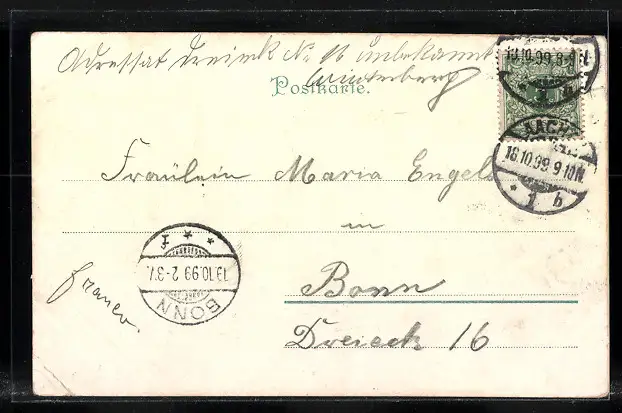 Adressat Dreieck No 16 unbekannt
Postkarte.
18.10.99.8-9
* 1 b
AACH
18.10.99.9-10N.
* 1 b
Fräulein Maria Engels
in
Bonn
Dreieck 16
franco.
* * 1
19.10.99.2-3
BONN